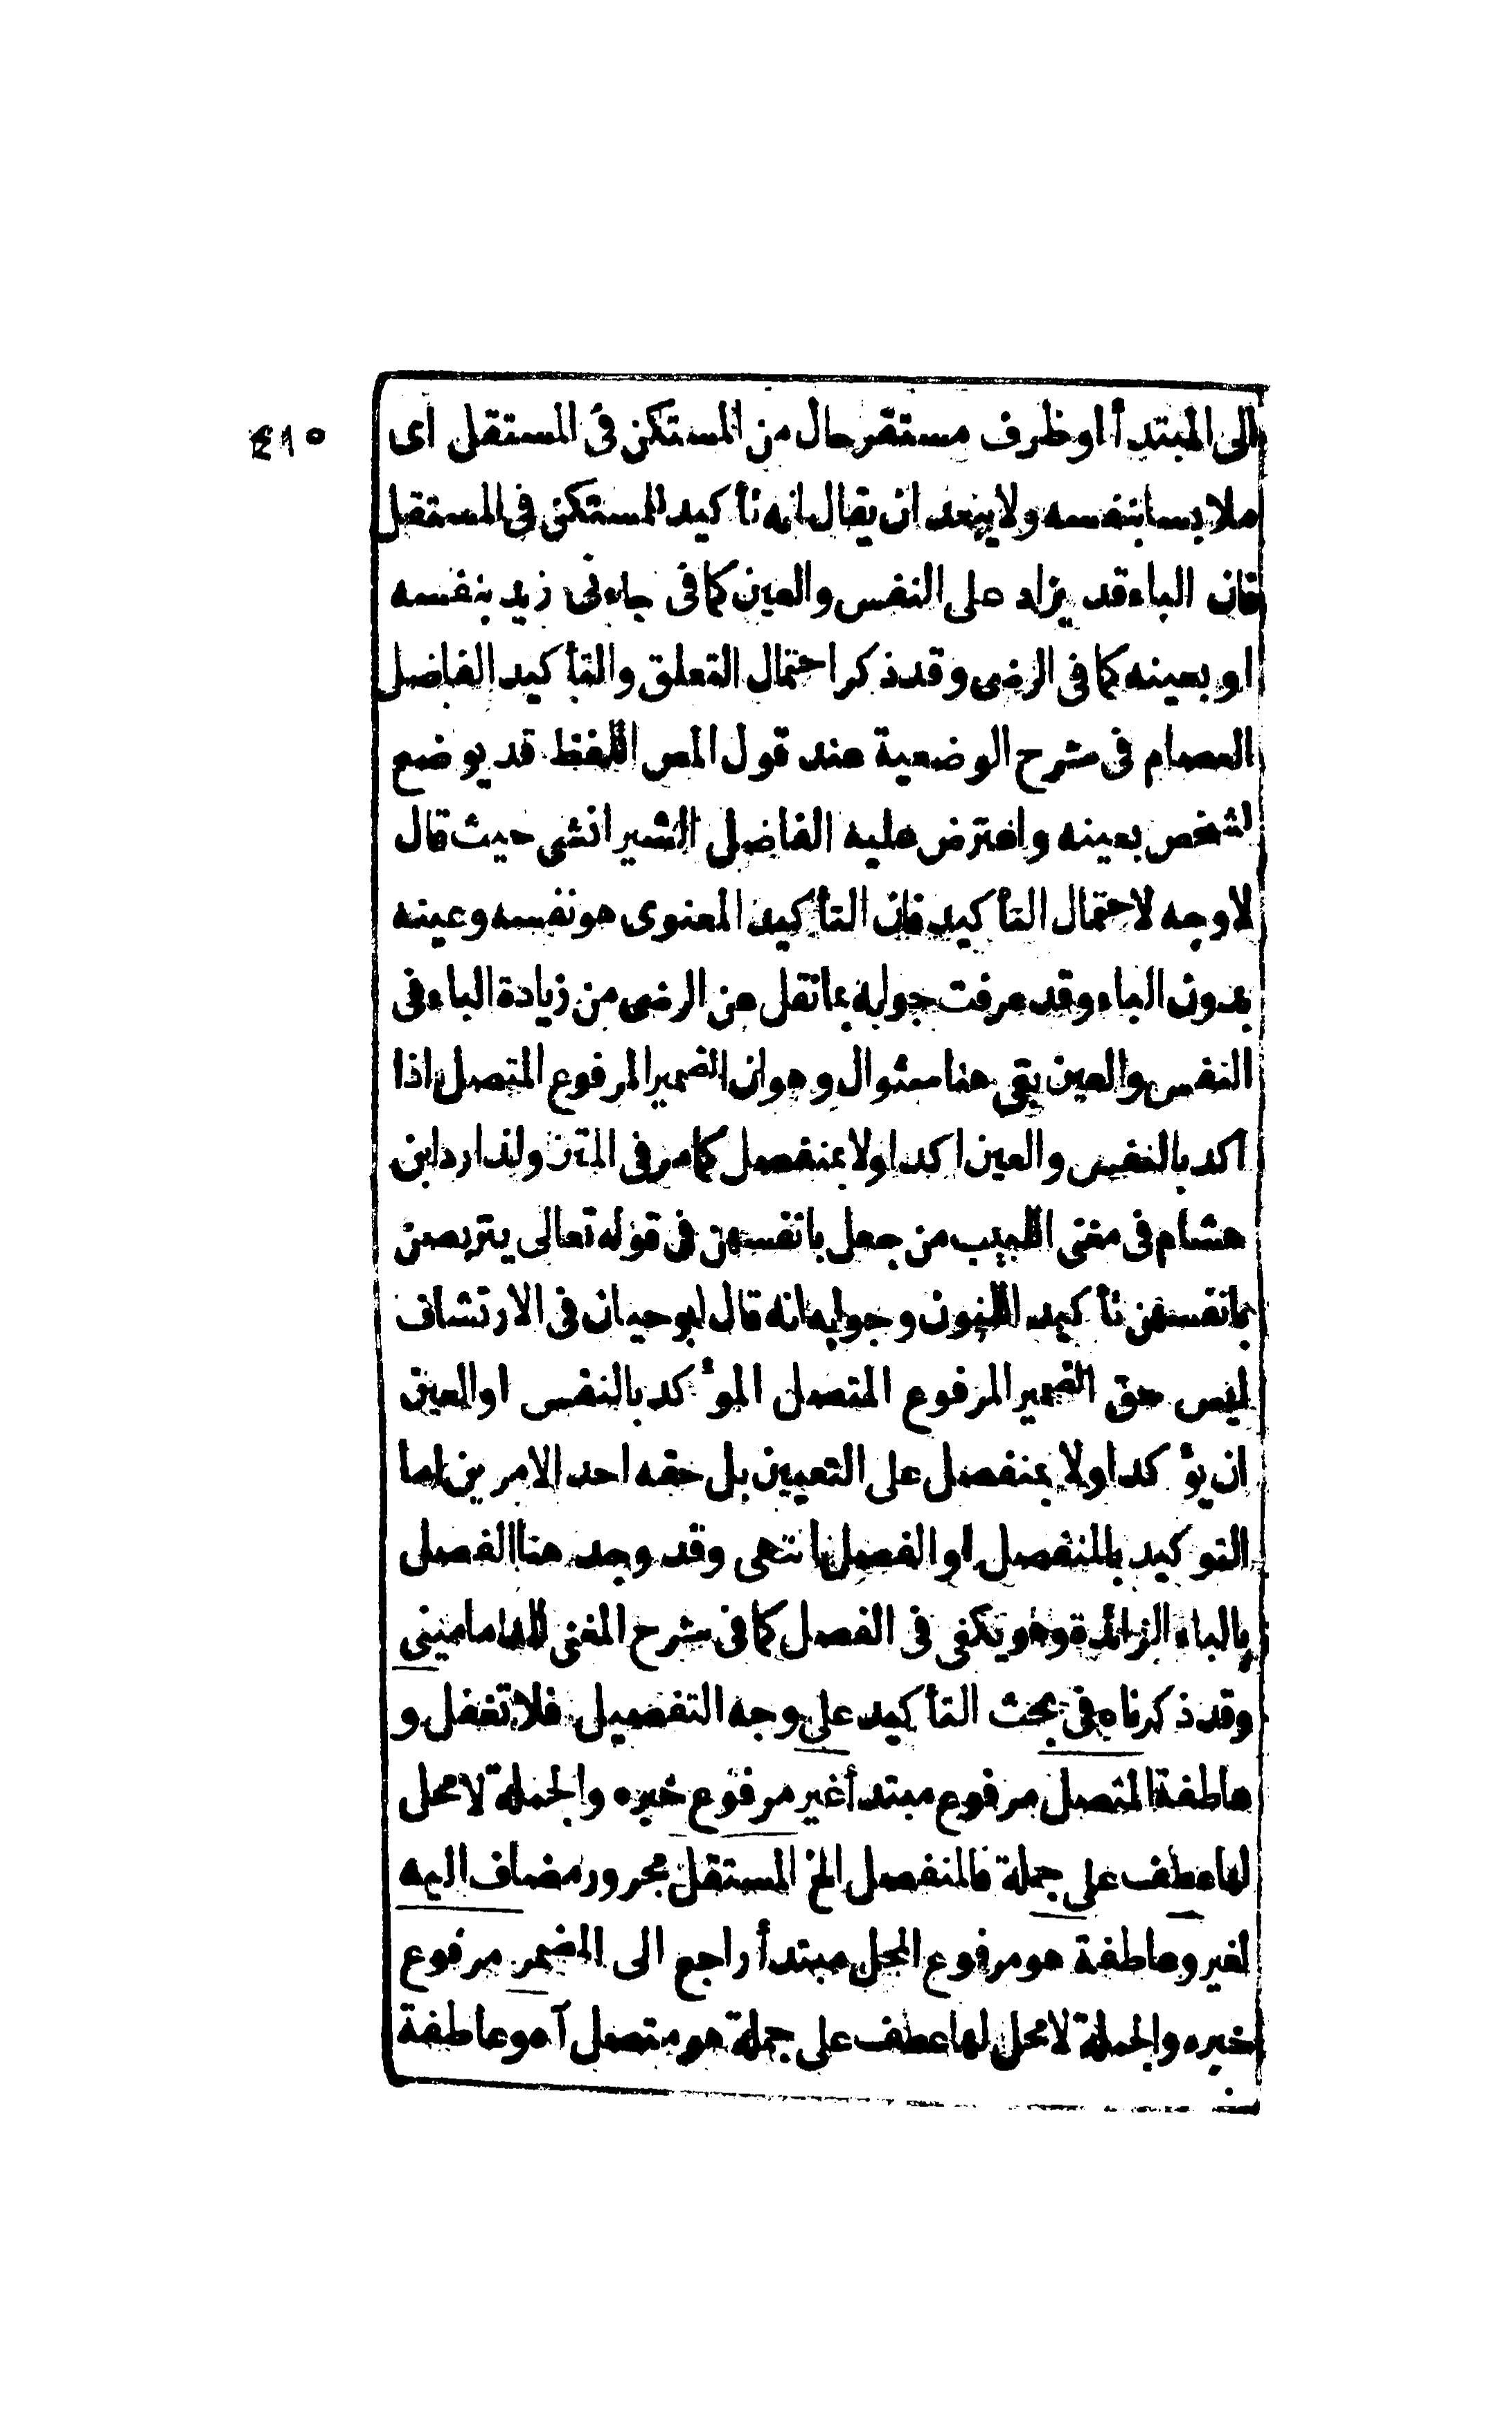 ٤١٥
الى المبتدأ او ظرف مستقر حال من المستكن فى المستقل اى
ملابسا بنفسه ولا يبعد ان يقال انه تأكيد المستكن فى المستقل
فان الباء قد يزاد على النفس والعين كما فى جاءنى زيد بنفسه
او بعينه كما فى الرضى وقد ذكر احتمال التعلق والتأكيد الفاضل
العصام فى شرح الوضعية عند قول المص اللفظ قد يوضع
لشخص بعينه واعترض عليه الفاضل الشيرانشى حيث قال
لا وجه لاحتمال التأكيد فان التأكيد المعنوى هو نفسه وعينه
بدون الباء وقد عرفت جوابه بما نقل عن الرضى من زيادة الباء فى
النفس والعين بقى هنا سئوال وهو ان الضمير المرفوع المتصل اذا
اكد بالنفس والعين اكد اولا بمنفصل كما مر فى المتن ولذا رد ابن
هشام فى مغنى اللبيب من جعل بانفسهن فى قوله تعالى يتربصن
بانفسهن تأكيد النون وجوابه انه قال ابو حيان فى الارتشاف
ليس حق الضمير المرفوع المتصل المؤكد بالنفس او العين
ان يؤكد اولا بمنفصل على التعيين بل حقه احد الامرين اما
التوكيد بالمنفصل او الفصل انتهى وقد وجد هنا الفصل
بالباء الزائدة وهو يكفى فى الفصل كما فى شرح المغنى للدمامينى
وقد ذكرناه فى بحث التأكيد على وجه التفصيل فلا تغفل و
عاطفة المتصل مرفوع مبتدأ غير مرفوع خبره والجملة لا محل
لها عطف على جملة فالمنفصل الخ المستقل مجرور مضاف اليه
لغير وعاطفة هو مرفوع المحل مبتدأ راجع الى المضمر مرفوع
خبره والجملة لا محل لها عطف على جملة هو متصل آه وعاطفة